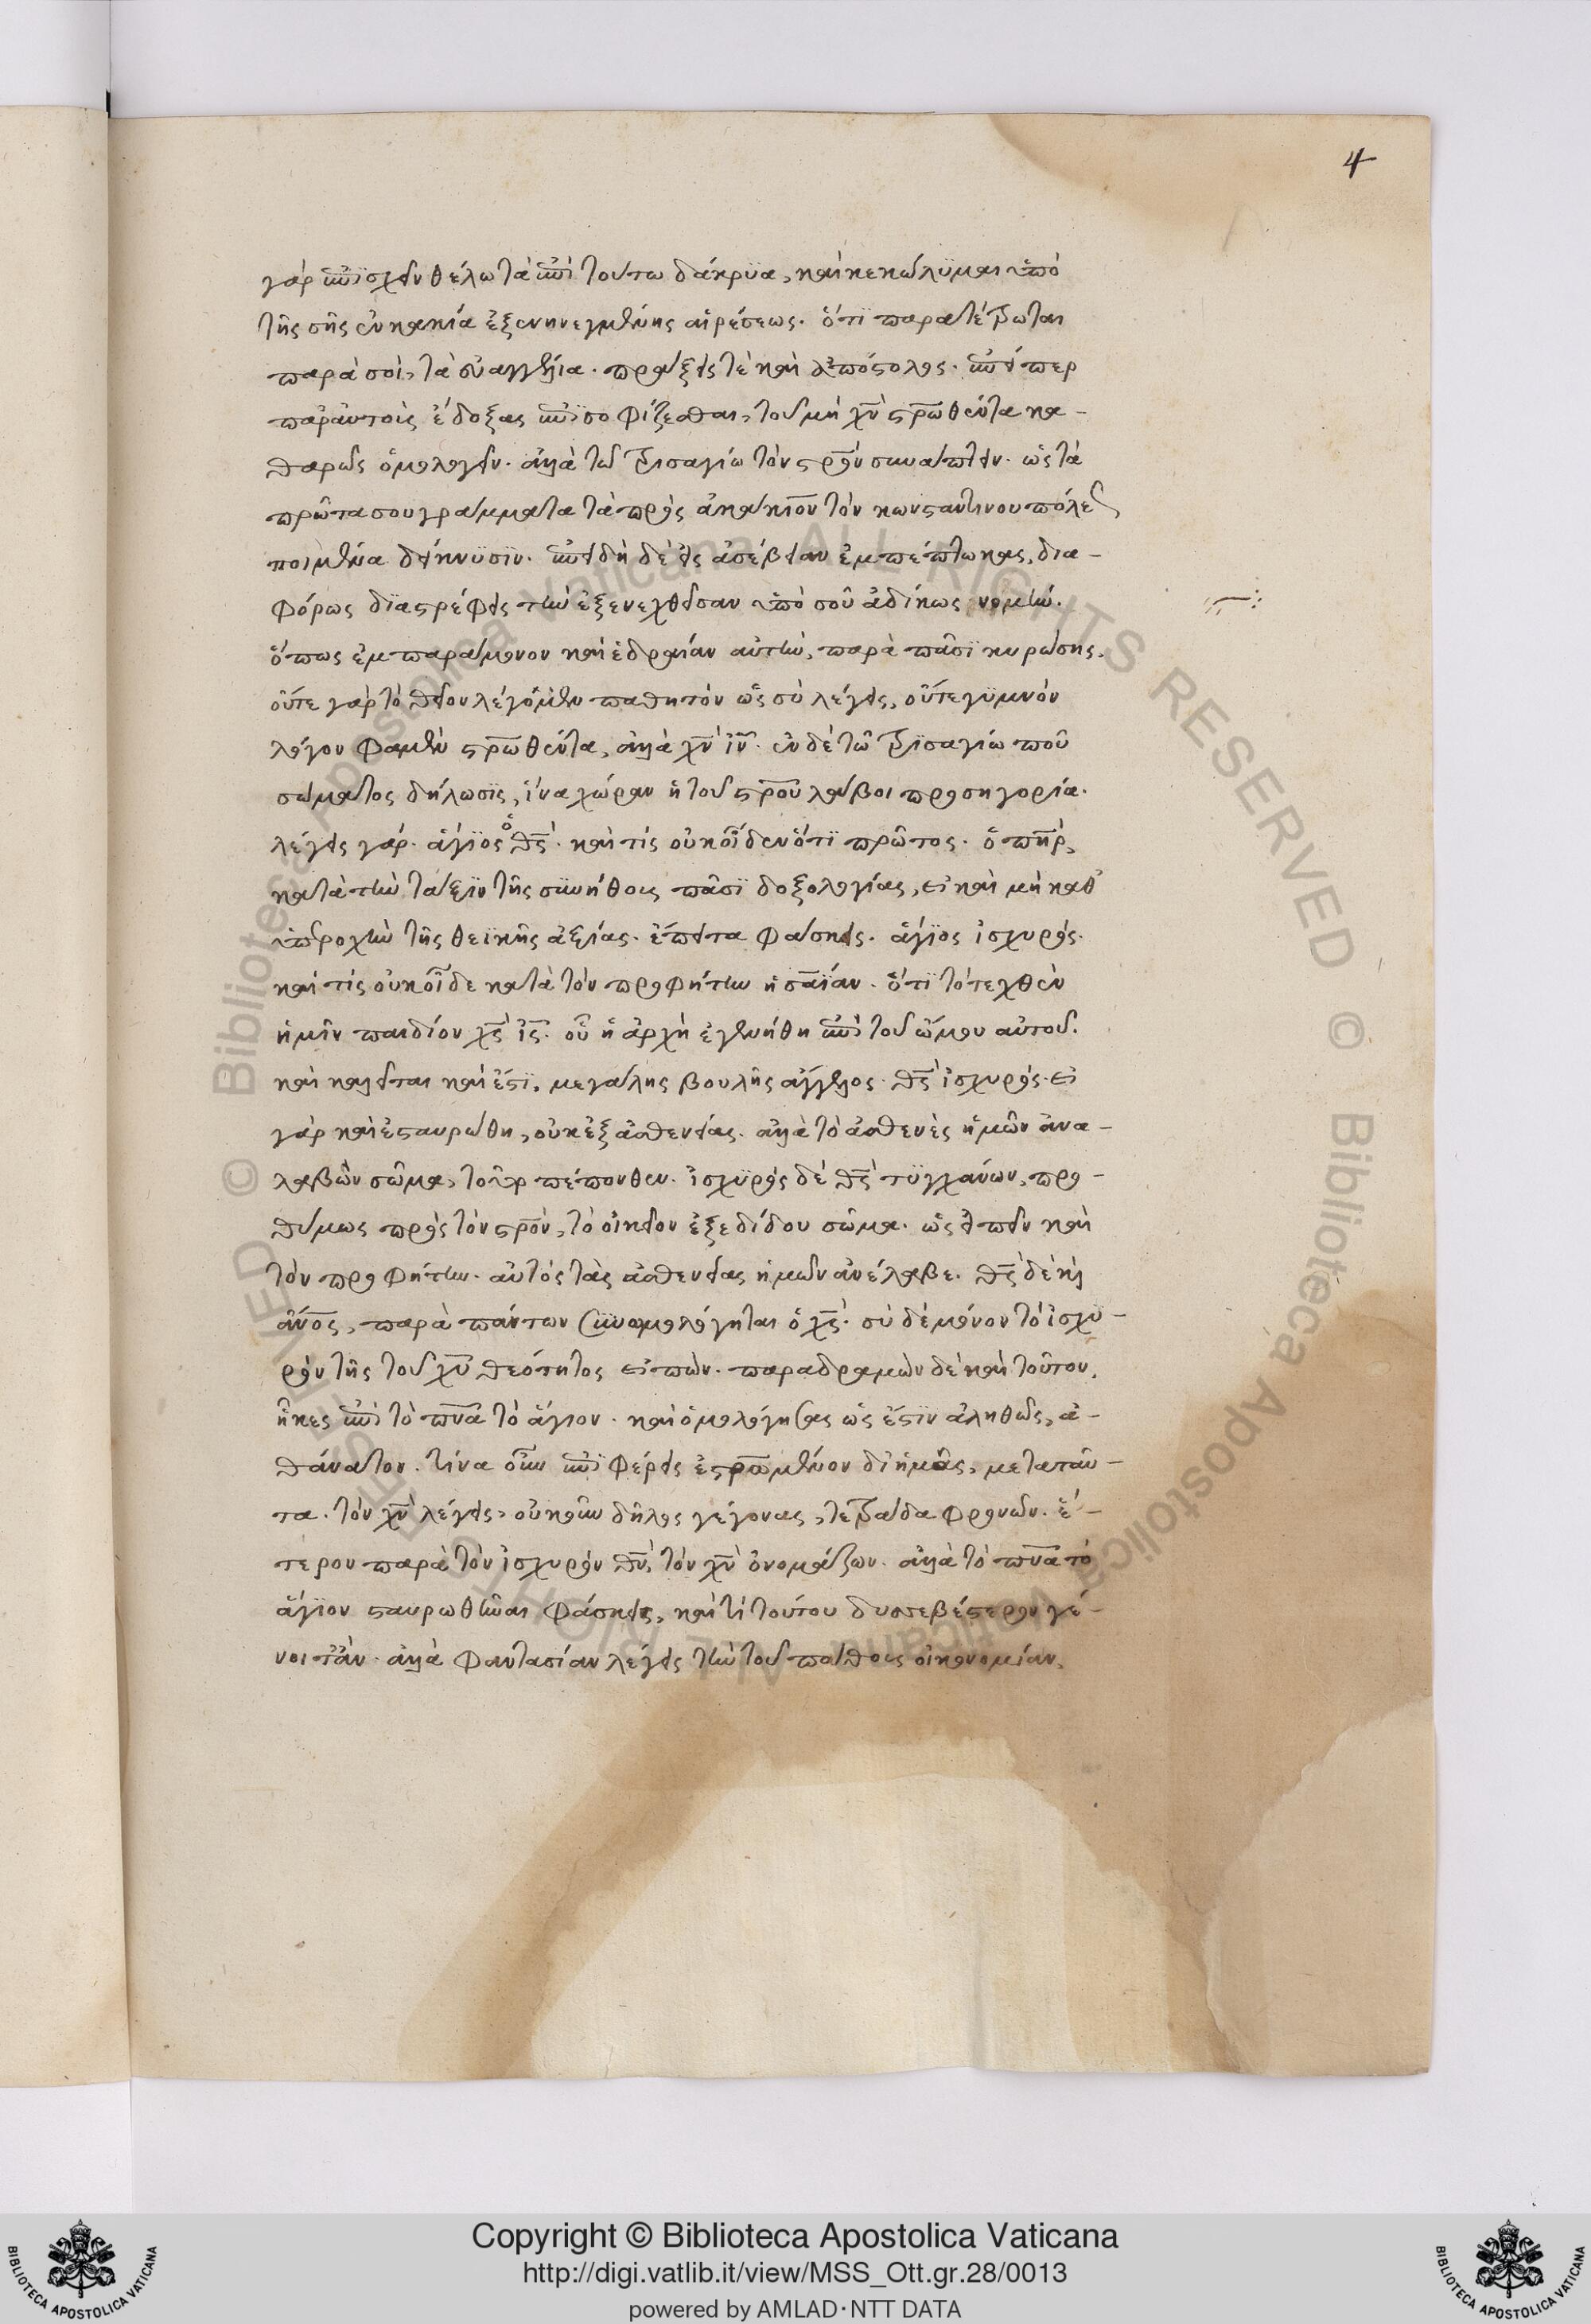 4
γὰρ ἐπϊσχεῖν θέλω τὰ ἐπὶ τούτω δάκρϋα, καὶ κεκώλϋμαι ὑπὸ
τῆς σῆς ἐν κακία ἐξενηνεγμένης αἱρέσεως. ὅτϊ παρατέτρωται
παρὰ σοὶ, τὰ εὐαγγέλια. πράξεις τὲ καὶ ἀπόστολος. ἐπείπερ
παρ' αὐτοῖς ἔδοξας ἐπϊσοφίζεσθαι, τοῦ μὴ χν̅ στρωθέντα κα-
θαρῶς ὁμολογεῖν. ἀλλὰ τῶ τρισαγίω τὸν στρο̅ν συνάπτειν. ὡς τὰ
πρῶτα σου γράμματα τὰ πρὸς ἀκακιον τὸν κωνσταντινουπόλεως
ποιμένα δείκνϋσϊν. ἐπειδὴ δὲ εἰς ἀσέβειαν ἐμπέπτωκας, δια-
φόρως δϊαστρέφεις τὴν ἐξενεχθεῖσαν ὑπὸ σοῦ ἀδίκως νομήν.
ὅπως ἐμπαράμονον καὶ ἑδραίαν αὐτὴν, παρὰ πᾶσϊ κυρώσης.
οὔτε γὰρ τὸ θεῖον λέγομεν παθητὸν ὡς σὺ λέγεις, οὔτε γϋμνὸν
λόγον φαμὲν στρωθέντα, ἀλλὰ χν̅ ιν̅. ἐν δὲ τῶ τρϊσαγίω ποῦ
σώματος δήλωσϊς, ἵνα χώραν ἡ τοῦ στρο̅υ λάβοι προσηγορία.
λέγεις γάρ. ἅγϊος ὁ θς̅. καὶ τίς οὐκ οἶδεν ὅτϊ πρῶτος. ὁ πηρ̅,
κατὰ τὴν τάξϊν τῆς συνήθους πᾶσϊ δοξολογίας, εἰ καὶ μὴ καθ'
ὑπεροχὴν τῆς θεϊκῆς ἀξίας. ἔπειτα φάσκεις. ἅγϊος ἰσχυρός.
καὶ τίς οὐκ οἶδε κατὰ τὸν προφήτην ἡσαΐαν. ὅτϊ τὸ τεχθὲν
ἡμῖν παιδίον χς̅ ις̅. οὗ ἡ ἀρχὴ ἐγενήθη ἐπὶ τοῦ ὤμου αὐτοῦ.
καὶ καλεῖται καὶ ἔστϊ, μεγάλης βουλῆς ἄγγελος. θς̅ ἰσχυρός. εἰ
γὰρ καὶ ἐσταυρώθη, οὐκ ἐξ ἀσθενείας. ἀλλὰ τὸ ἀσθενὲς ἡμῶν ἀνα-
λαβὼν σῶμα, τοῦπερ πέπονθεν. ἰσχϋρὸς δὲ θς̅ τϋγχάνων, προ-
θύμως πρὸς τὸν στρο̅ν, τὸ οἰκεῖον ἐξεδίδου σῶμα. ὡς εἰπεῖν καὶ
τὸν προφήτην. αὐτὸς τὰς ἀσθενείας ἡμῶν ἀνέλαβε. θς̅ δὲ καὶ
ἄνο̅ς, παρὰ πάντων συνωμολόγηται ὁ χς̅. σὺ δὲ μόνον τὸ ἰσχϋ-
ρὸν τῆς τοῦ χυ̅ θεότητος εἰπών. παραδραμὼν δὲ καὶ τοῦτον,
ἧκες ἐπὶ τὸ πνα̅ τὸ ἅγιον. καὶ ὁμολόγησας ὡς ἔστϊν ἀληθῶς, ἀ-
θάνατον. τίνα οὖν ἐπϊφέρεις ἐστρωμένον δι' ἡμᾶς, μετὰ ταῦ-
τα. τὸν χν̅ λέγεις, οὐκοῦν δῆλος γέγονας, τετράδα φρονῶν. ἕ-
τερον παρὰ τὸν ἰσχυρὸν θν̅, τὸν χν̅ ὀνομάζων. ἀλλὰ τὸ πνα̅ τὸ
ἅγϊον σταυρωθῆναι φάσκεις, καὶ τί τούτου δυσσεβέστερον γέ-
νοιτ' ἄν. ἀλλὰ φαντασίαν λέγεις τὴν τοῦ πάθους οἰκονομίαν,
© Biblioteca Apostolica Vaticana ALL RIGHTS RESERVED
Copyright © Biblioteca Apostolica Vaticana
http://digi.vatlib.it/view/MSS_Ott.gr.28/0013
powered by AMLAD·NTT DATA
BIBLIOTECA APOSTOLICA VATICANA
BIBLIOTECA APOSTOLICA VATICANA